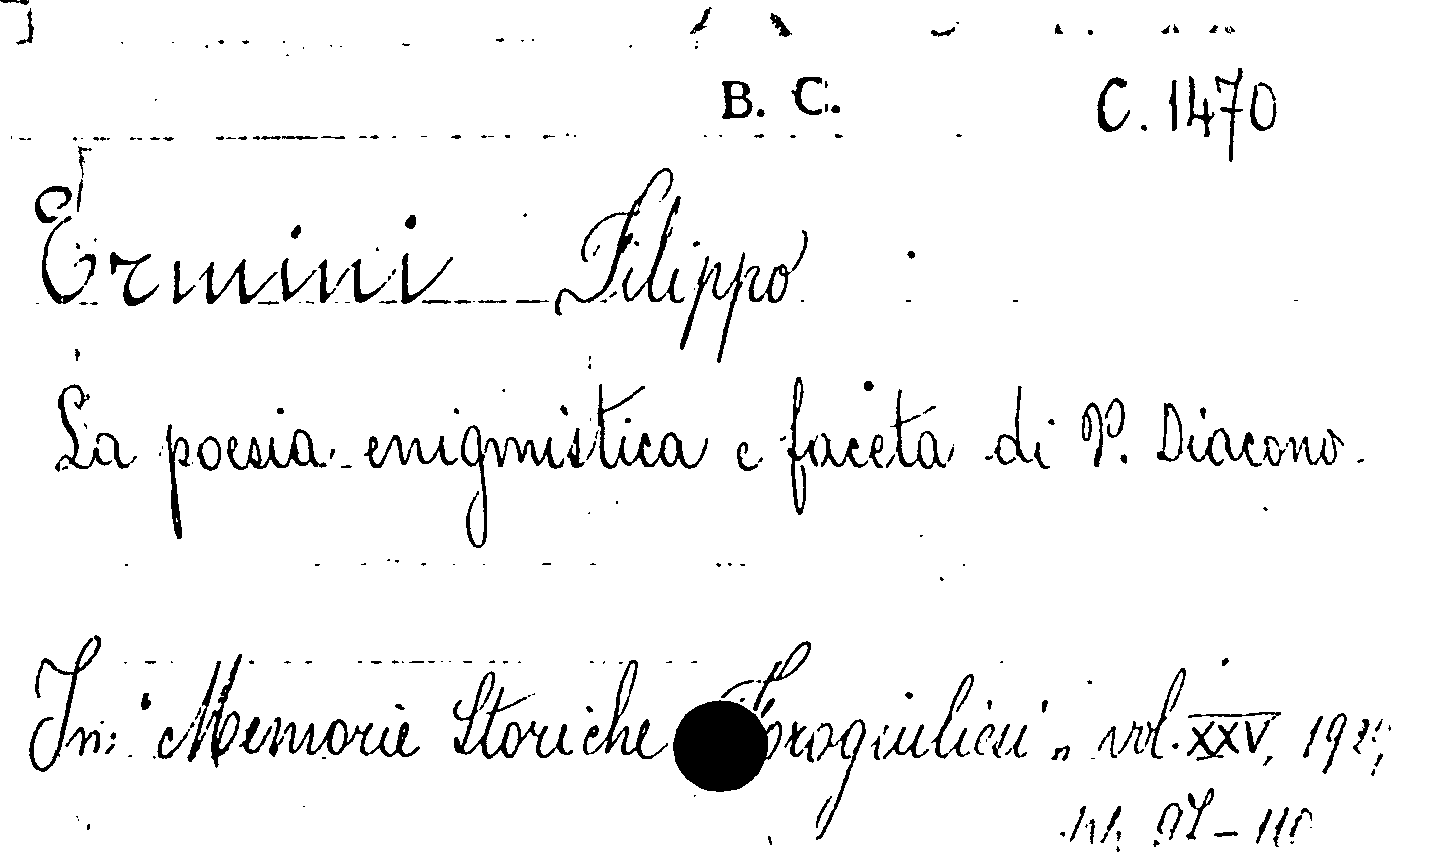 B. C. C. 1470
Ermini Filippo
La poesia enigmistica e faceta di P. Diacono.
In: "Memorie Storiche Forogiuliesi", vol. XXV,
- 110